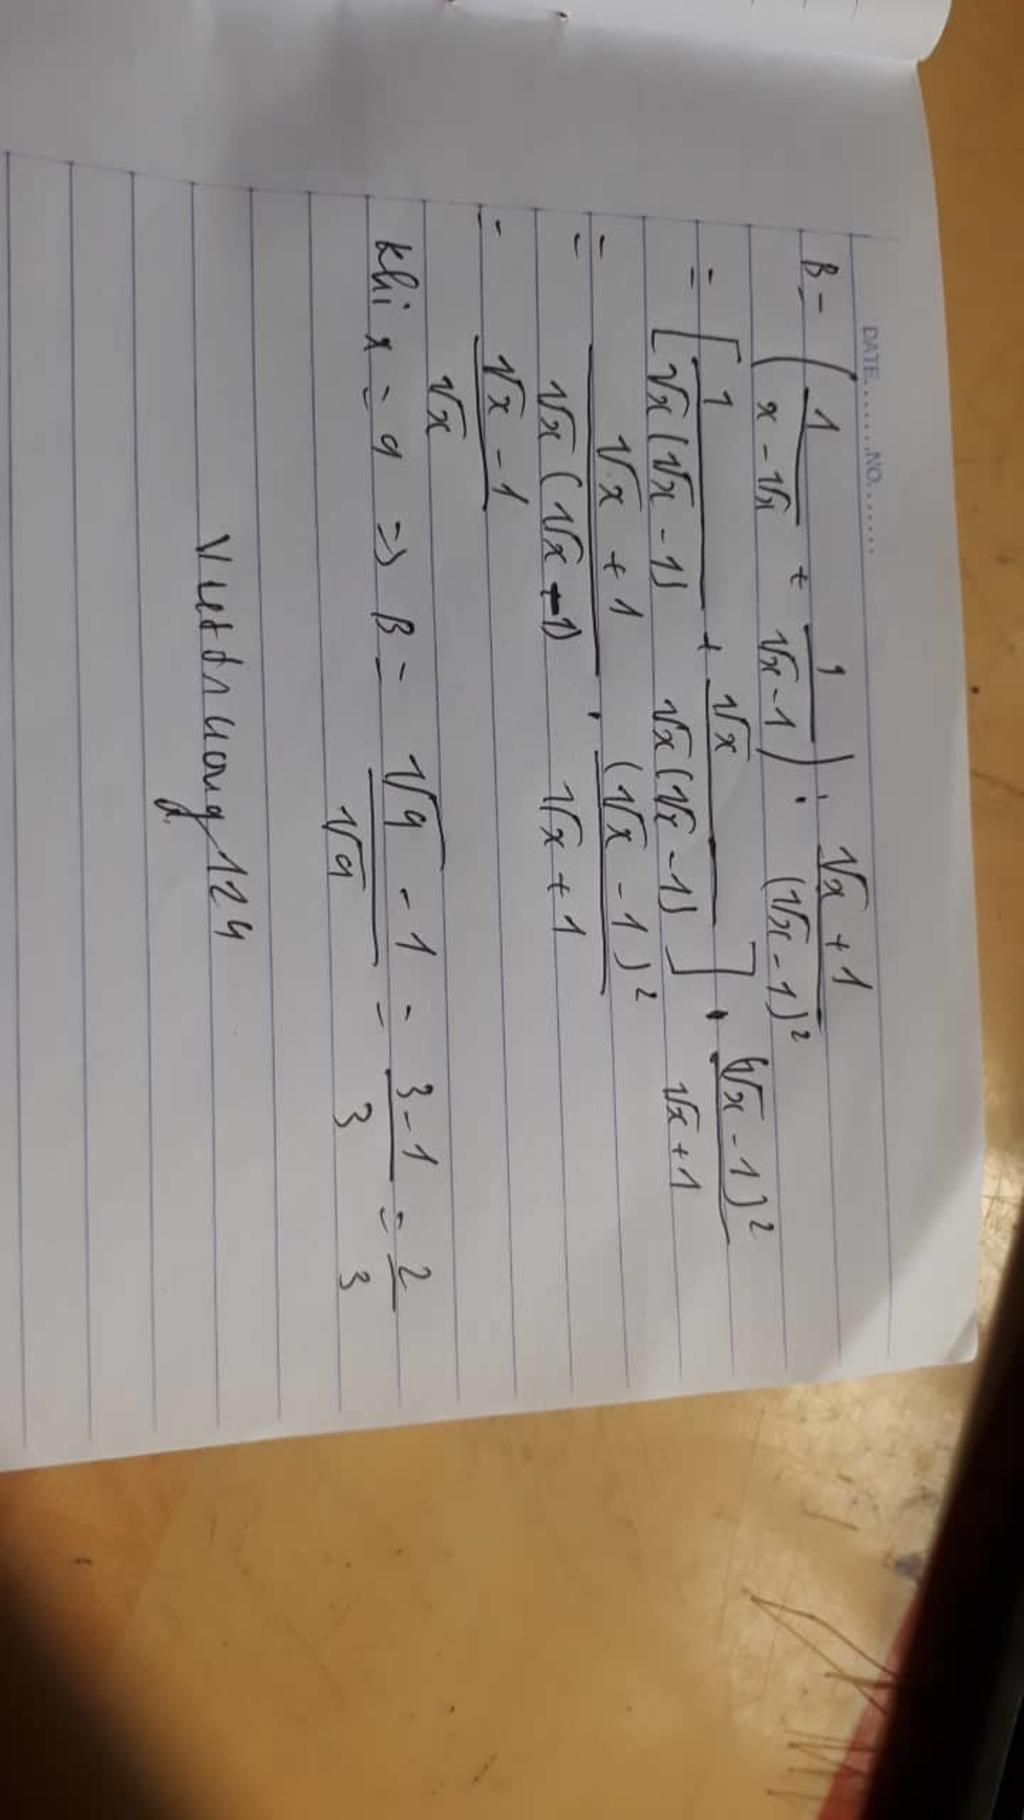 DATE.......NO.......
B = (1/(x - √x) + 1/(√x - 1)) : (√x + 1)/(√x - 1)²
= [1/(√x(√x - 1)) + √x/(√x(√x - 1))] . (√x - 1)²/(√x + 1)
= (√x + 1)/(√x(√x - 1)) . (√x - 1)²/(√x + 1)
= (√x - 1)/√x
Khi x = 9 => B = (√9 - 1)/√9 = (3 - 1)/3 = 2/3
Vietdnuong124